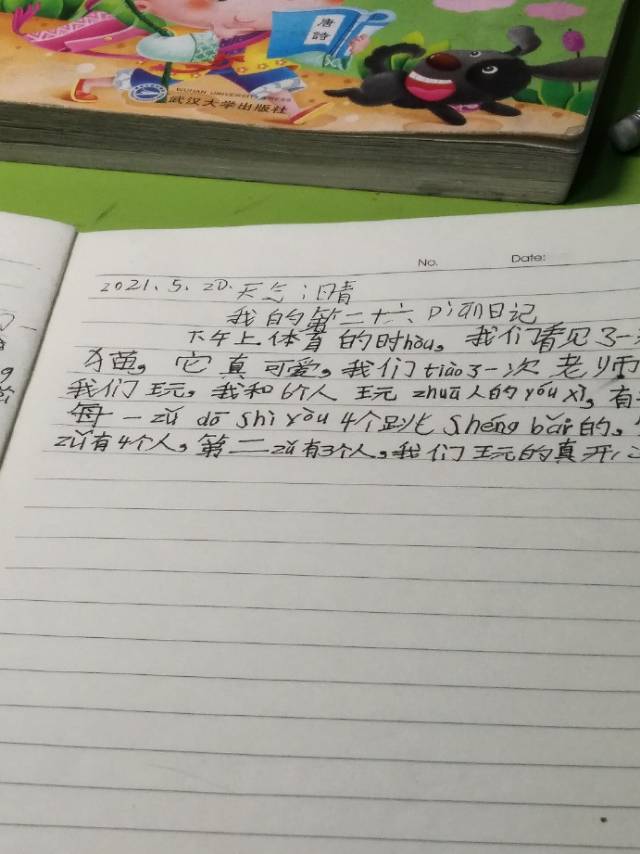 唐
詩
WUHAN UNIVERSITY PRESS
武汉大学出版社
No.
Date:
2021.5.20.天气:晴
我的第二十六piān日记
下午上体育的时hou,我们看见了一
猫,它真可爱,我们tiào了一次老师
我们玩,我和6个人玩zhuā人的yóu xì,有
每一zǔ dō shì yǒu 4个跳shéng bǎi的,
zǔ有4个人,第二zǔ有3个人,我们玩的真开心